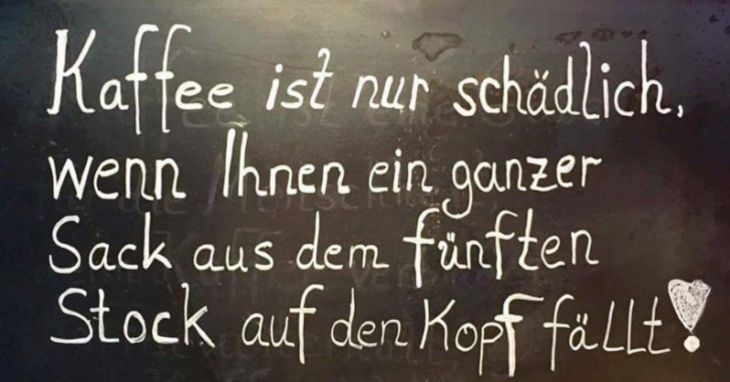 Kaffee ist nur schädlich,
wenn Ihnen ein ganzer
Sack aus dem fünften
Stock auf den Kopf fällt!